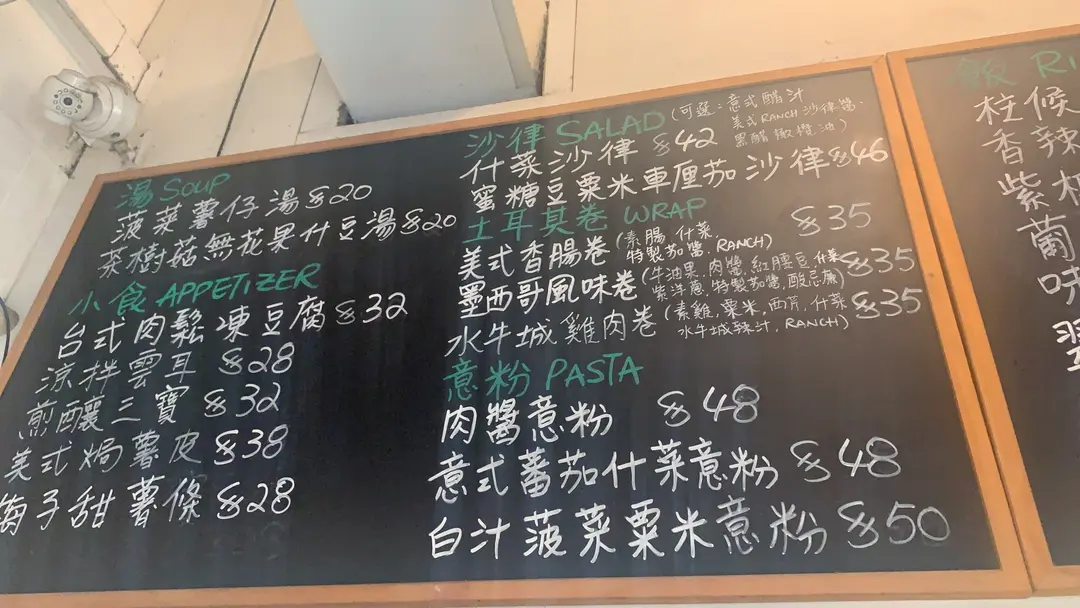 湯 SOUP
菠菜薯仔湯 $20
茶樹菇無花果什豆湯 $20
小食 APPETIZER
台式肉鬆凍豆腐 $32
涼拌雲耳 $28
煎釀三寶 $32
美式焗薯皮 $38
梅子甜薯條 $28
沙律 SALAD (可選：意式醋汁
美式RANCH沙律醬．
黑醋橄欖油)
什菜沙律 $42
蜜糖豆粟米車厘茄沙律 $46
土耳其卷 WRAP
美式香腸卷 (素腸，什菜，
特製茄醬，RANCH) $35
墨西哥風味卷 (牛油果，肉醬，紅腰豆，什菜
紫洋蔥，特製茄醬，酸忌廉) $35
水牛城雞肉卷 (素雞，粟米，西芹，什菜
水牛城辣汁，RANCH) $35
意粉 PASTA
肉醬意粉 $48
意式蕃茄什菜意粉 $48
白汁菠菜粟米意粉 $50
飯 RI
柱候
香辣
紫
葡
味